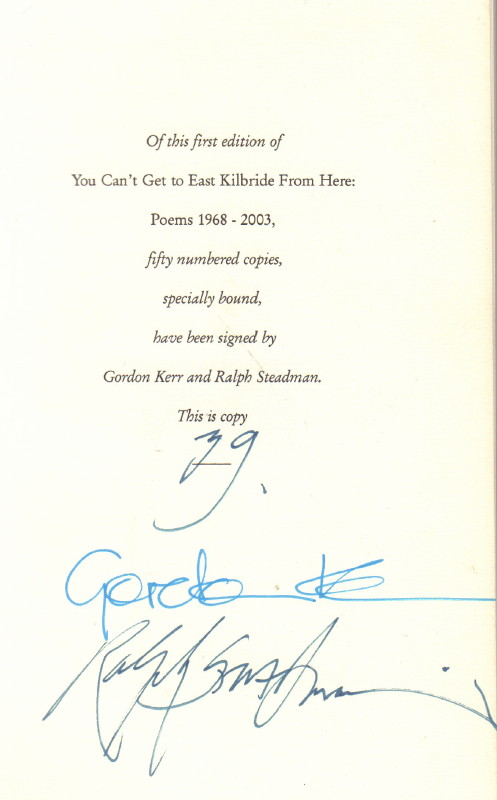 Of this first edition of
You Can't Get to East Kilbride From Here:
Poems 1968 - 2003,
fifty numbered copies,
specially bound,
have been signed by
Gordon Kerr and Ralph Steadman.
This is copy
39.
Gordon K
Ralph Steadman